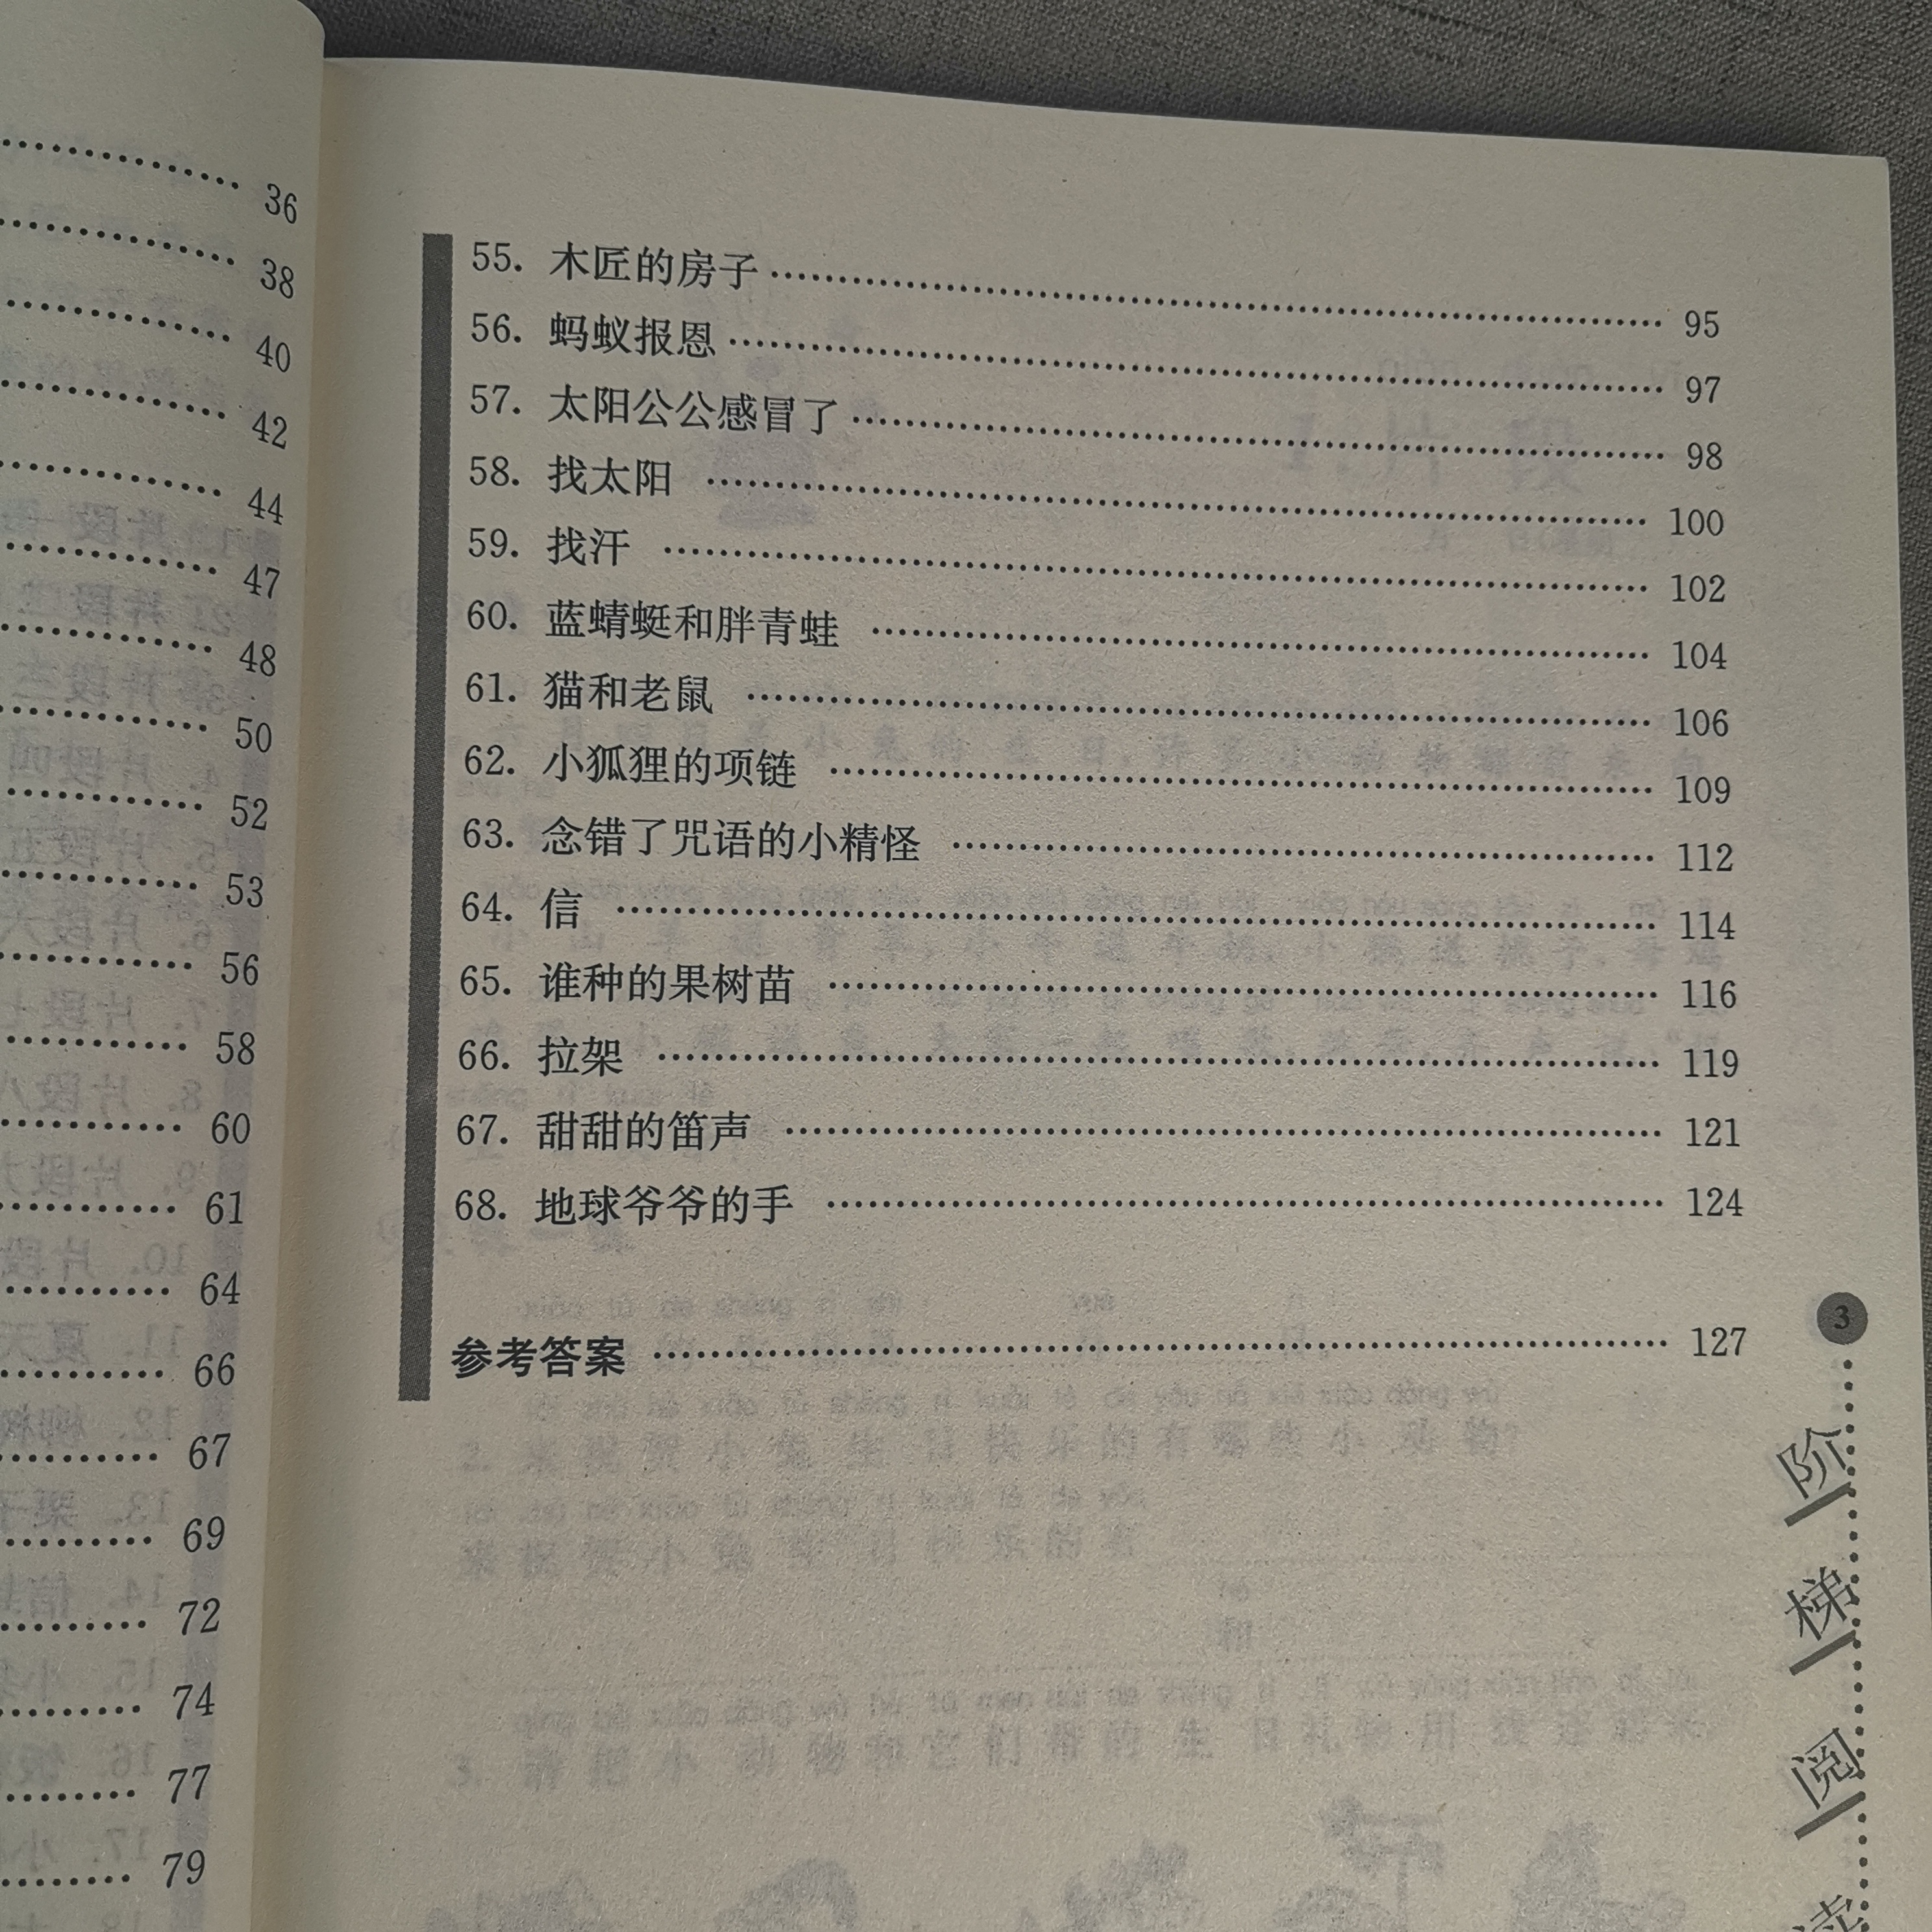 36
38
40
42
44
47
48
50
52
53
56
58
60
61
64
66
67
69
72
74
77
79
55. 木匠的房子 95
56. 蚂蚁报恩 97
57. 太阳公公感冒了 98
58. 找太阳 100
59. 找汗 102
60. 蓝蜻蜓和胖青蛙 104
61. 猫和老鼠 106
62. 小狐狸的项链 109
63. 念错了咒语的小精怪 112
64. 信 114
65. 谁种的果树苗 116
66. 拉架 119
67. 甜甜的笛声 121
68. 地球爷爷的手 124
参考答案 127
3
阶
梯
阅
读